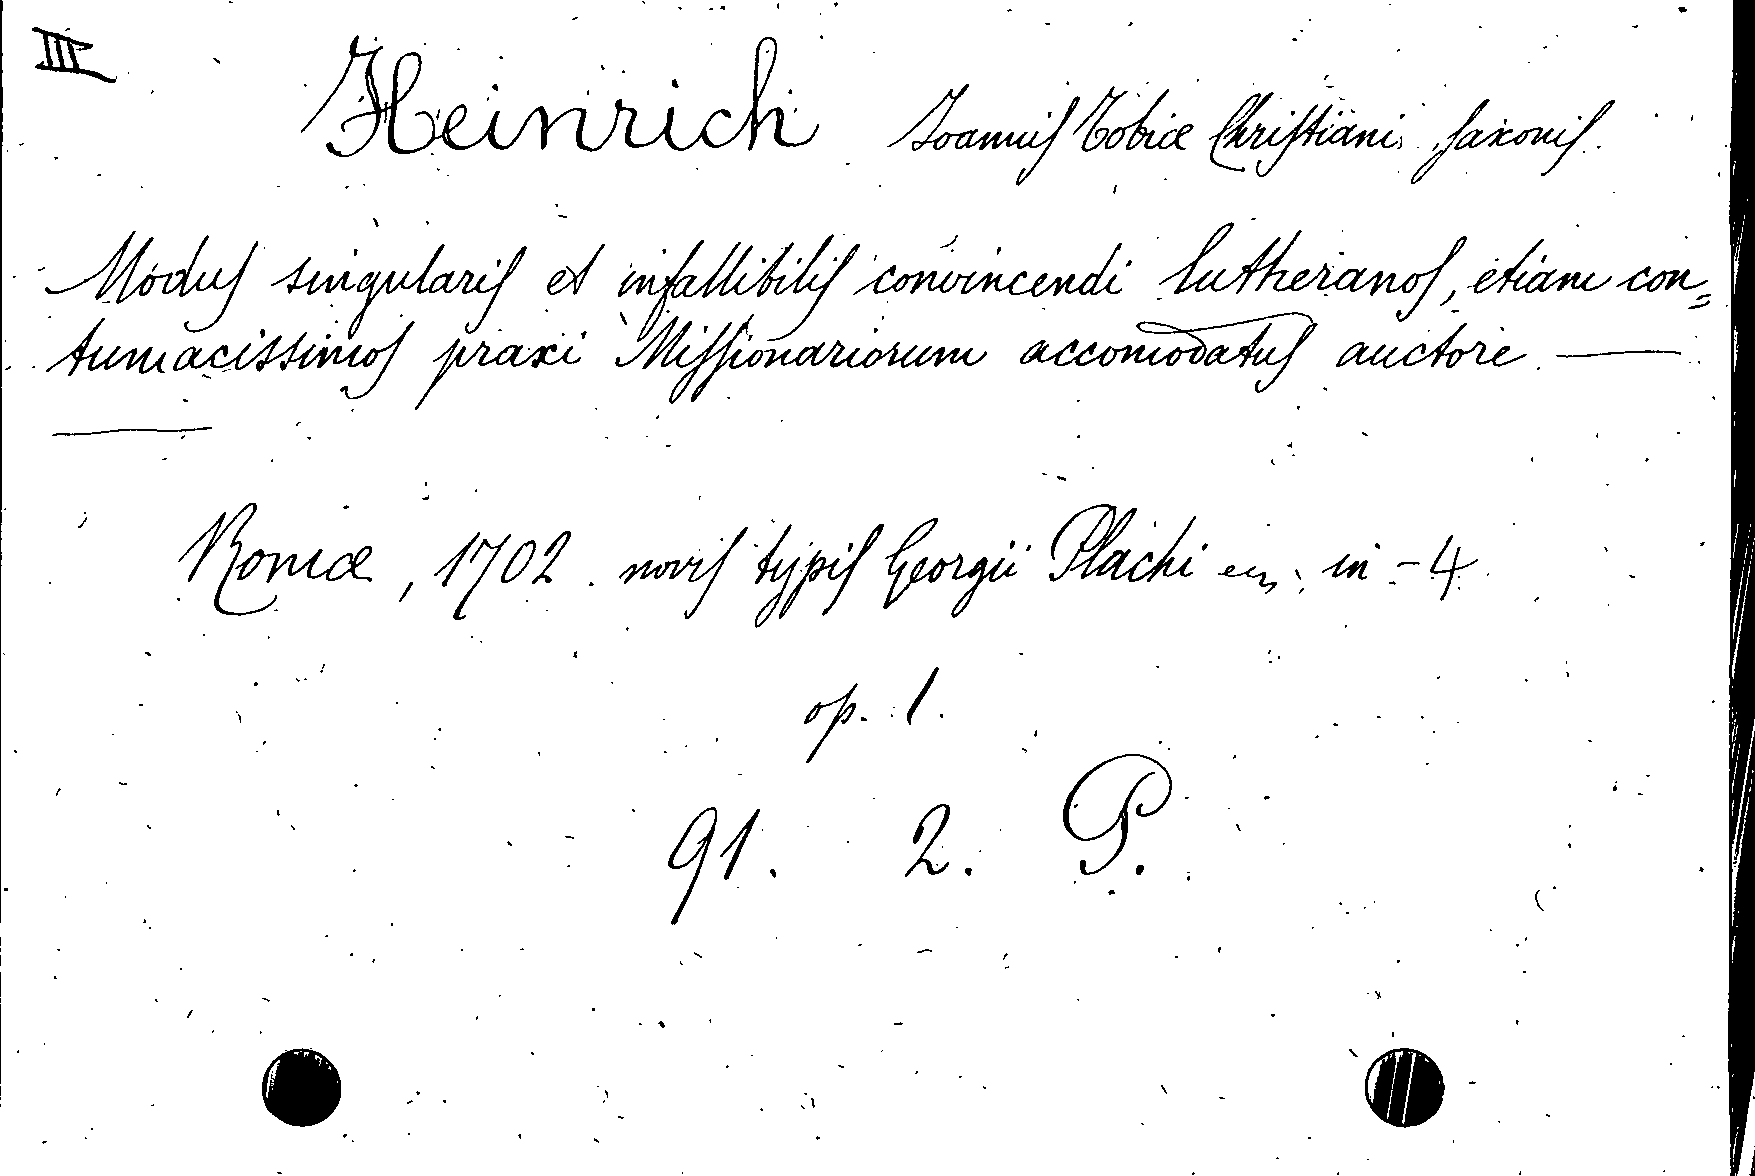 III
Heinrich Joannis Tobiæ Christiani Saxonis.
Modus singularis et infallibilis convincendi Lutheranos, etiam con=
tumacissimos praxi Missionariorum accomodatus auctore ——
——
Romæ, 1702. novis typis Georgii Plachi in-4
op. 1.
91. 2. P.